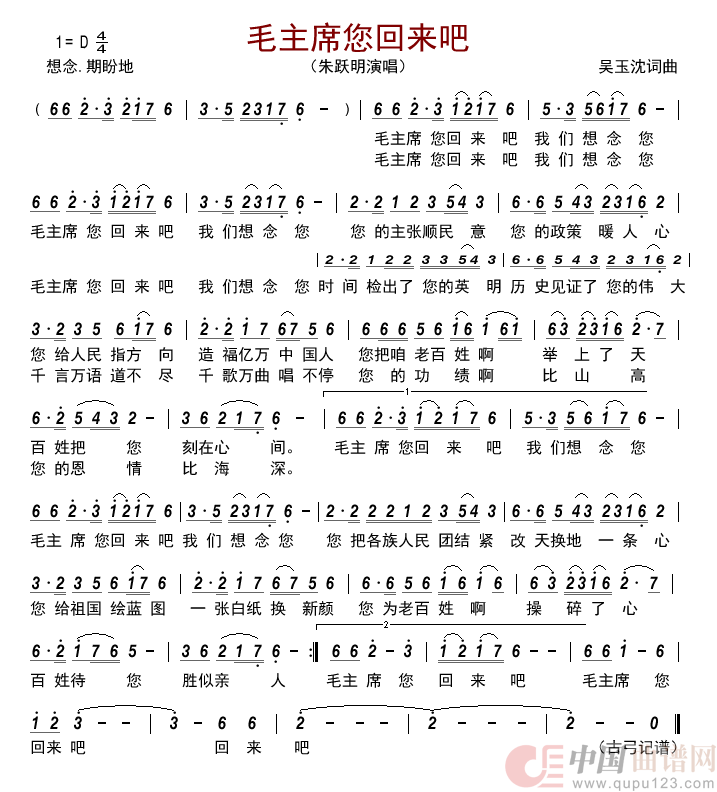 毛主席您回来吧
1= D 4/4
想念.期盼地
（朱跃明演唱）
吴玉沈词曲
( 6 6 2·3 2 1 7 6 | 3·5 2 3 1 7 6 - ) | 6 6 2·3 1 2 1 7 6 | 5·3 5 6 1 7 6 - |
毛主席 您回 来 吧 我 们 想 念 您
毛主席 您回 来 吧 我 们 想 念 您
6 6 2·3 1 2 1 7 6 | 3·5 2 3 1 7 6 - | 2·2 1 2 3 5 4 3 | 6·6 5 4 3 2 3 1 6 |
毛主席 您 回 来 吧 我 们 想 念 您 您 的主张顺民 意 您 的政策 暖 人 心
| 2·2 1 2 2 3 3 5 4 3 | 6·6 5 4 3 2 3 1 6 |
毛主席 您 回 来 吧 我 们 想 念 您 时 间 检出了 您的英 明 历 史见证了 您的伟 大
3·2 3 5 6 1 7 6 | 2·2 1 7 6 7 5 6 | 6 5 5 6 1 6 1 6 1 | 6 3 2 3 1 6 2·7 |
您 给人民 指方 向 造 福亿万 中 国人 您把咱 老 百 姓 啊 举 上 了 天
千 言万语 道不 尽 千 歌万曲 唱 不停 您 的 功 绩 啊 比 山 高
6·2 5 4 3 2 - | 3 6 2 1 7 6 - | 1 6 6 2·3 1 2 1 7 6 | 5·3 5 6 1 7 6 - |
百 姓把 您 刻在心 间。 毛主席 您回 来 吧 我 们 想 念 您
您 的恩 情 比 海 深。
6 6 2·3 1 2 1 7 6 | 3·5 2 3 1 7 6 - | 2·2 2 1 2 3 5 4 3 | 6·6 5 4 3 2 3 1 6 |
毛主 席 您回 来 吧 我 们 想 念 您 您 把各族人民 团结 紧 改 天换地 一 条 心
3·2 3 5 6 1 7 6 | 2·2 1 7 6 7 5 6 | 6·5 5 6 1 6 1 6 | 6 3 2 3 1 6 2·7 |
您 给祖国 绘蓝 图 一 张白纸 换 新颜 您 为老 百 姓 啊 操 碎 了 心
6·2 1 7 6 5 - | 3 6 2 1 7 6 - :‖ 2 6 6 2 - 3 | 1 2 1 7 6 - | 6 6 1 - 6 |
百 姓待 您 胜似亲 人 毛主 席 您 回 来 吧 毛主席 您
1 2 3 - | 3 - 6 6 | 2 - - - | 2 - - - | 2 - - 0 ‖
回来 吧 回 来 吧
（古弓记谱）
中国曲谱网
www.qupu123.com